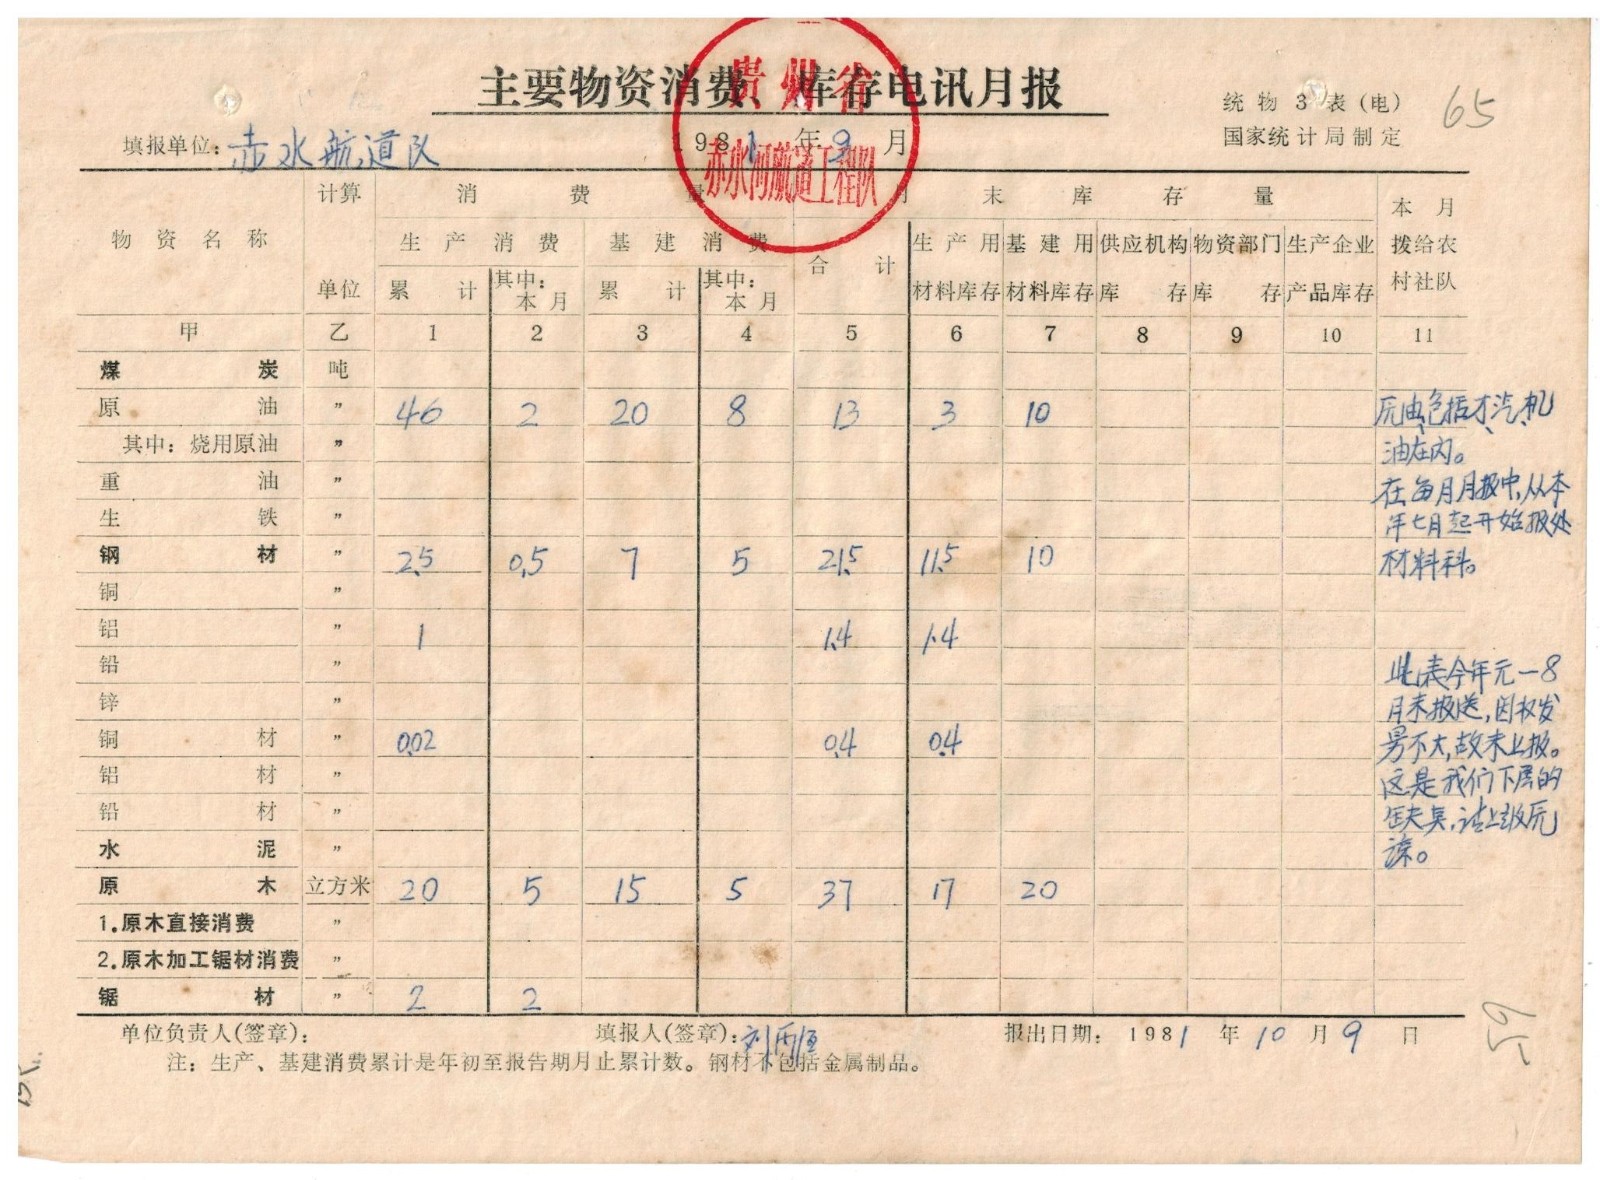 主要物资消费、库存电讯月报
贵州省
赤水河航道工程队
统物3表(电)
国家统计局制定
65
填报单位:赤水航道队
1981年9月
物资名称 计算单位 消费量 月末库存量 本月拨给农村社队
生产消费 基建消费 合计 生产用材料库存 基建用材料库存 供应机构库存 物资部门库存 生产企业产品库存
累计 其中:本月 累计 其中:本月
甲 乙 1 2 3 4 5 6 7 8 9 10 11
煤炭 吨
原油 〃 46 2 20 8 13 3 10
其中:烧用原油 〃
重油 〃
生铁 〃
钢材 〃 2.5 0.5 7 5 21.5 11.5 10
铜 〃
铝 〃 1 1.4 1.4
铅 〃
锌 〃
铜材 〃 0.02 0.4 0.4
铝材 〃
铅材 〃
水泥 〃
原木 立方米 20 5 15 5 37 17 20
1.原木直接消费 〃
2.原木加工锯材消费 〃
锯材 〃 2 2
油在内。
在每月月报中,从本
年七月起开始报处
材料科。
此表今年元一8
月未报送,因收发
男不大,故未上报。
这是我们下层的
谅。
单位负责人(签章): 填报人(签章): 报出日期:1981年10月9日
注:生产、基建消费累计是年初至报告期月止累计数。钢材不包括金属制品。
59